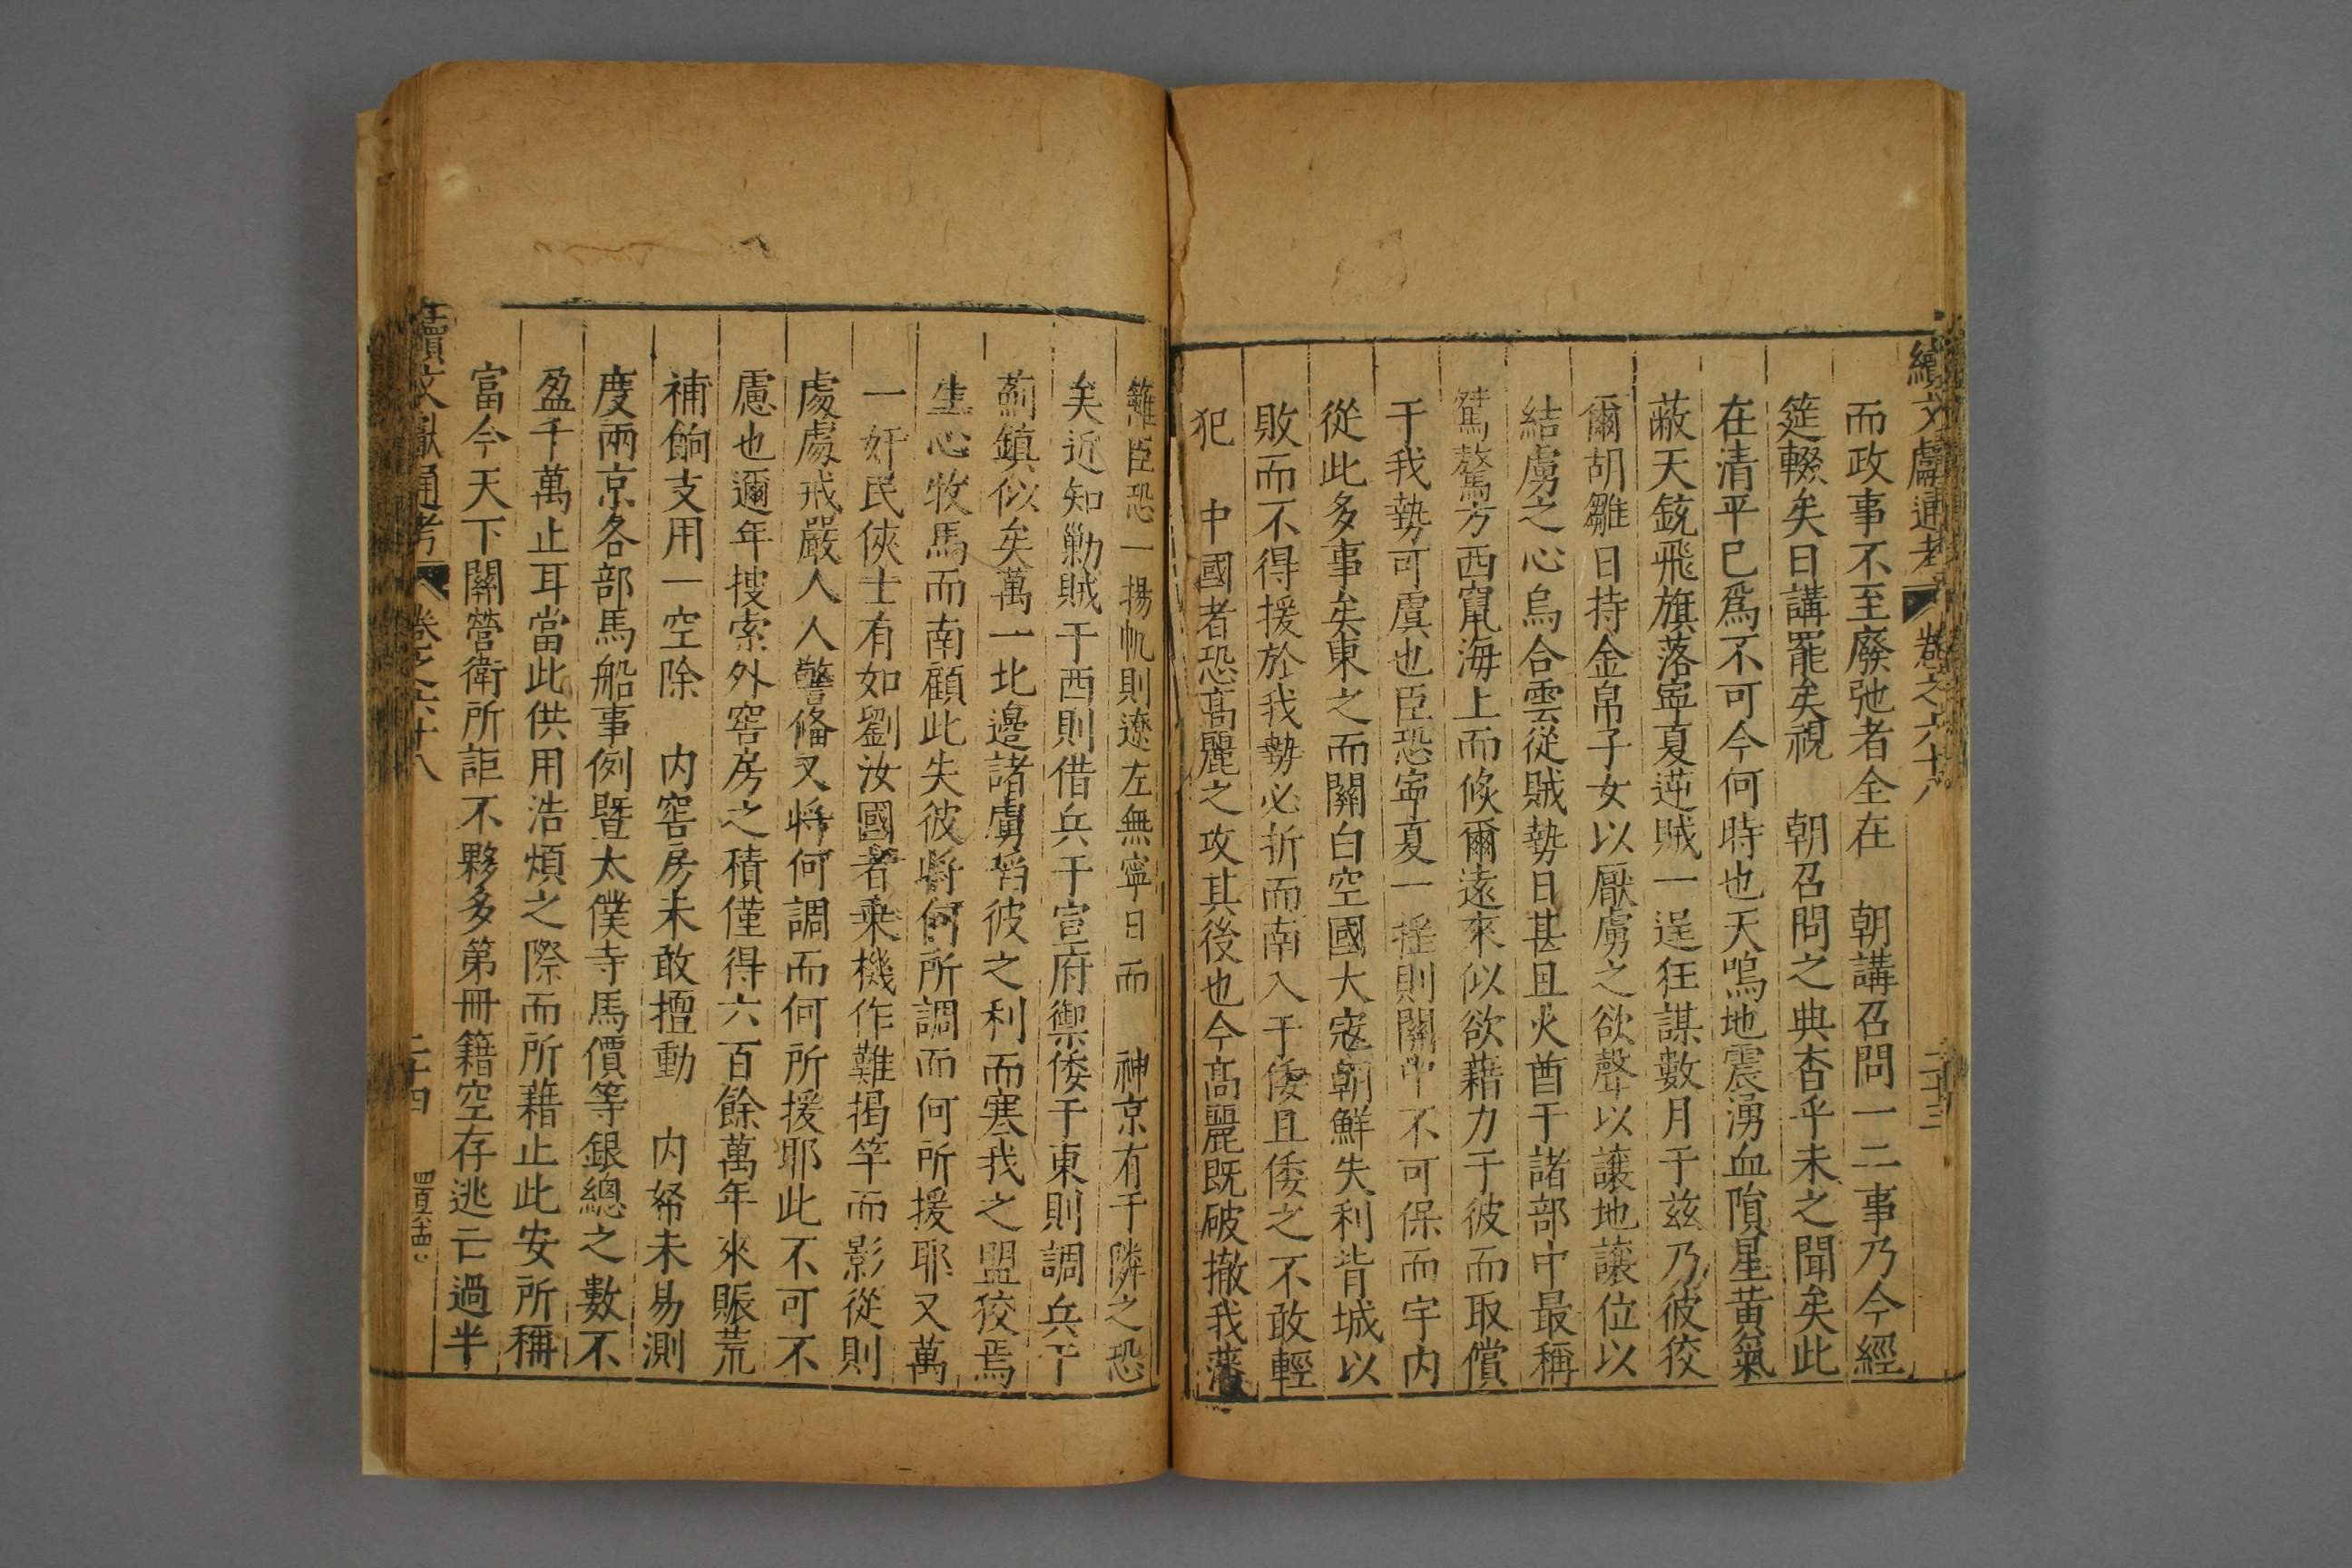 續文獻通考 卷之六十八 二十三
而政事不至廢弛者全在 朝講召問一二事乃今經
筵輟矣日講罷矣視 朝召問之典杳乎未之聞矣此
在清平已爲不可今何時也天鳴地震湧血隕星黄氣
蔽天銃飛旗落寧夏逆賊一逞狂謀數月于兹乃彼狡
爾胡雛日持金帛子女以厭虜之欲聲以讓地讓位以
結虜之心烏合雲從賊勢日甚且火酋于諸部中最稱
驁方西竄海上而倐爾遠來似欲藉力于彼而取償
于我勢可虞也臣恐寧夏一搖則關中不可保而宇内
從此多事矣東之而關白空國大寇朝鮮失利背城以
敗而不得援於我勢必折而南入于倭且倭之不敢輕
犯 中國者恐高麗之攻其後也今高麗既破撤我藩
籬臣恐一揚帆則遼左無寧日而 神京有于隣之恐
矣近知勦賊于西則借兵于宣府禦倭于東則調兵于
薊鎮似矣萬一北邊諸虜䛐彼之利而寒我之盟狡焉
生心牧馬而南顧此失彼將何所調而何所援耶又萬
一奸民俠士有如劉汝國者乘機作難揭竿而影從則
處處戒嚴人人警俻又將何調而何所援耶此不可不
慮也邇年搜索外窖房之積僅得六百餘萬年來賑荒
補餉支用一空除 内窖房未敢擅動 内帑未易測
度兩京各部馬船事例暨太僕寺馬價等銀總之數不
盈千萬止耳當此供用浩煩之際而所藉止此安所稱
富今天下關營衛所詎不夥多第冊籍空存逃亡過半
續文獻通考 卷之六十八 二十四